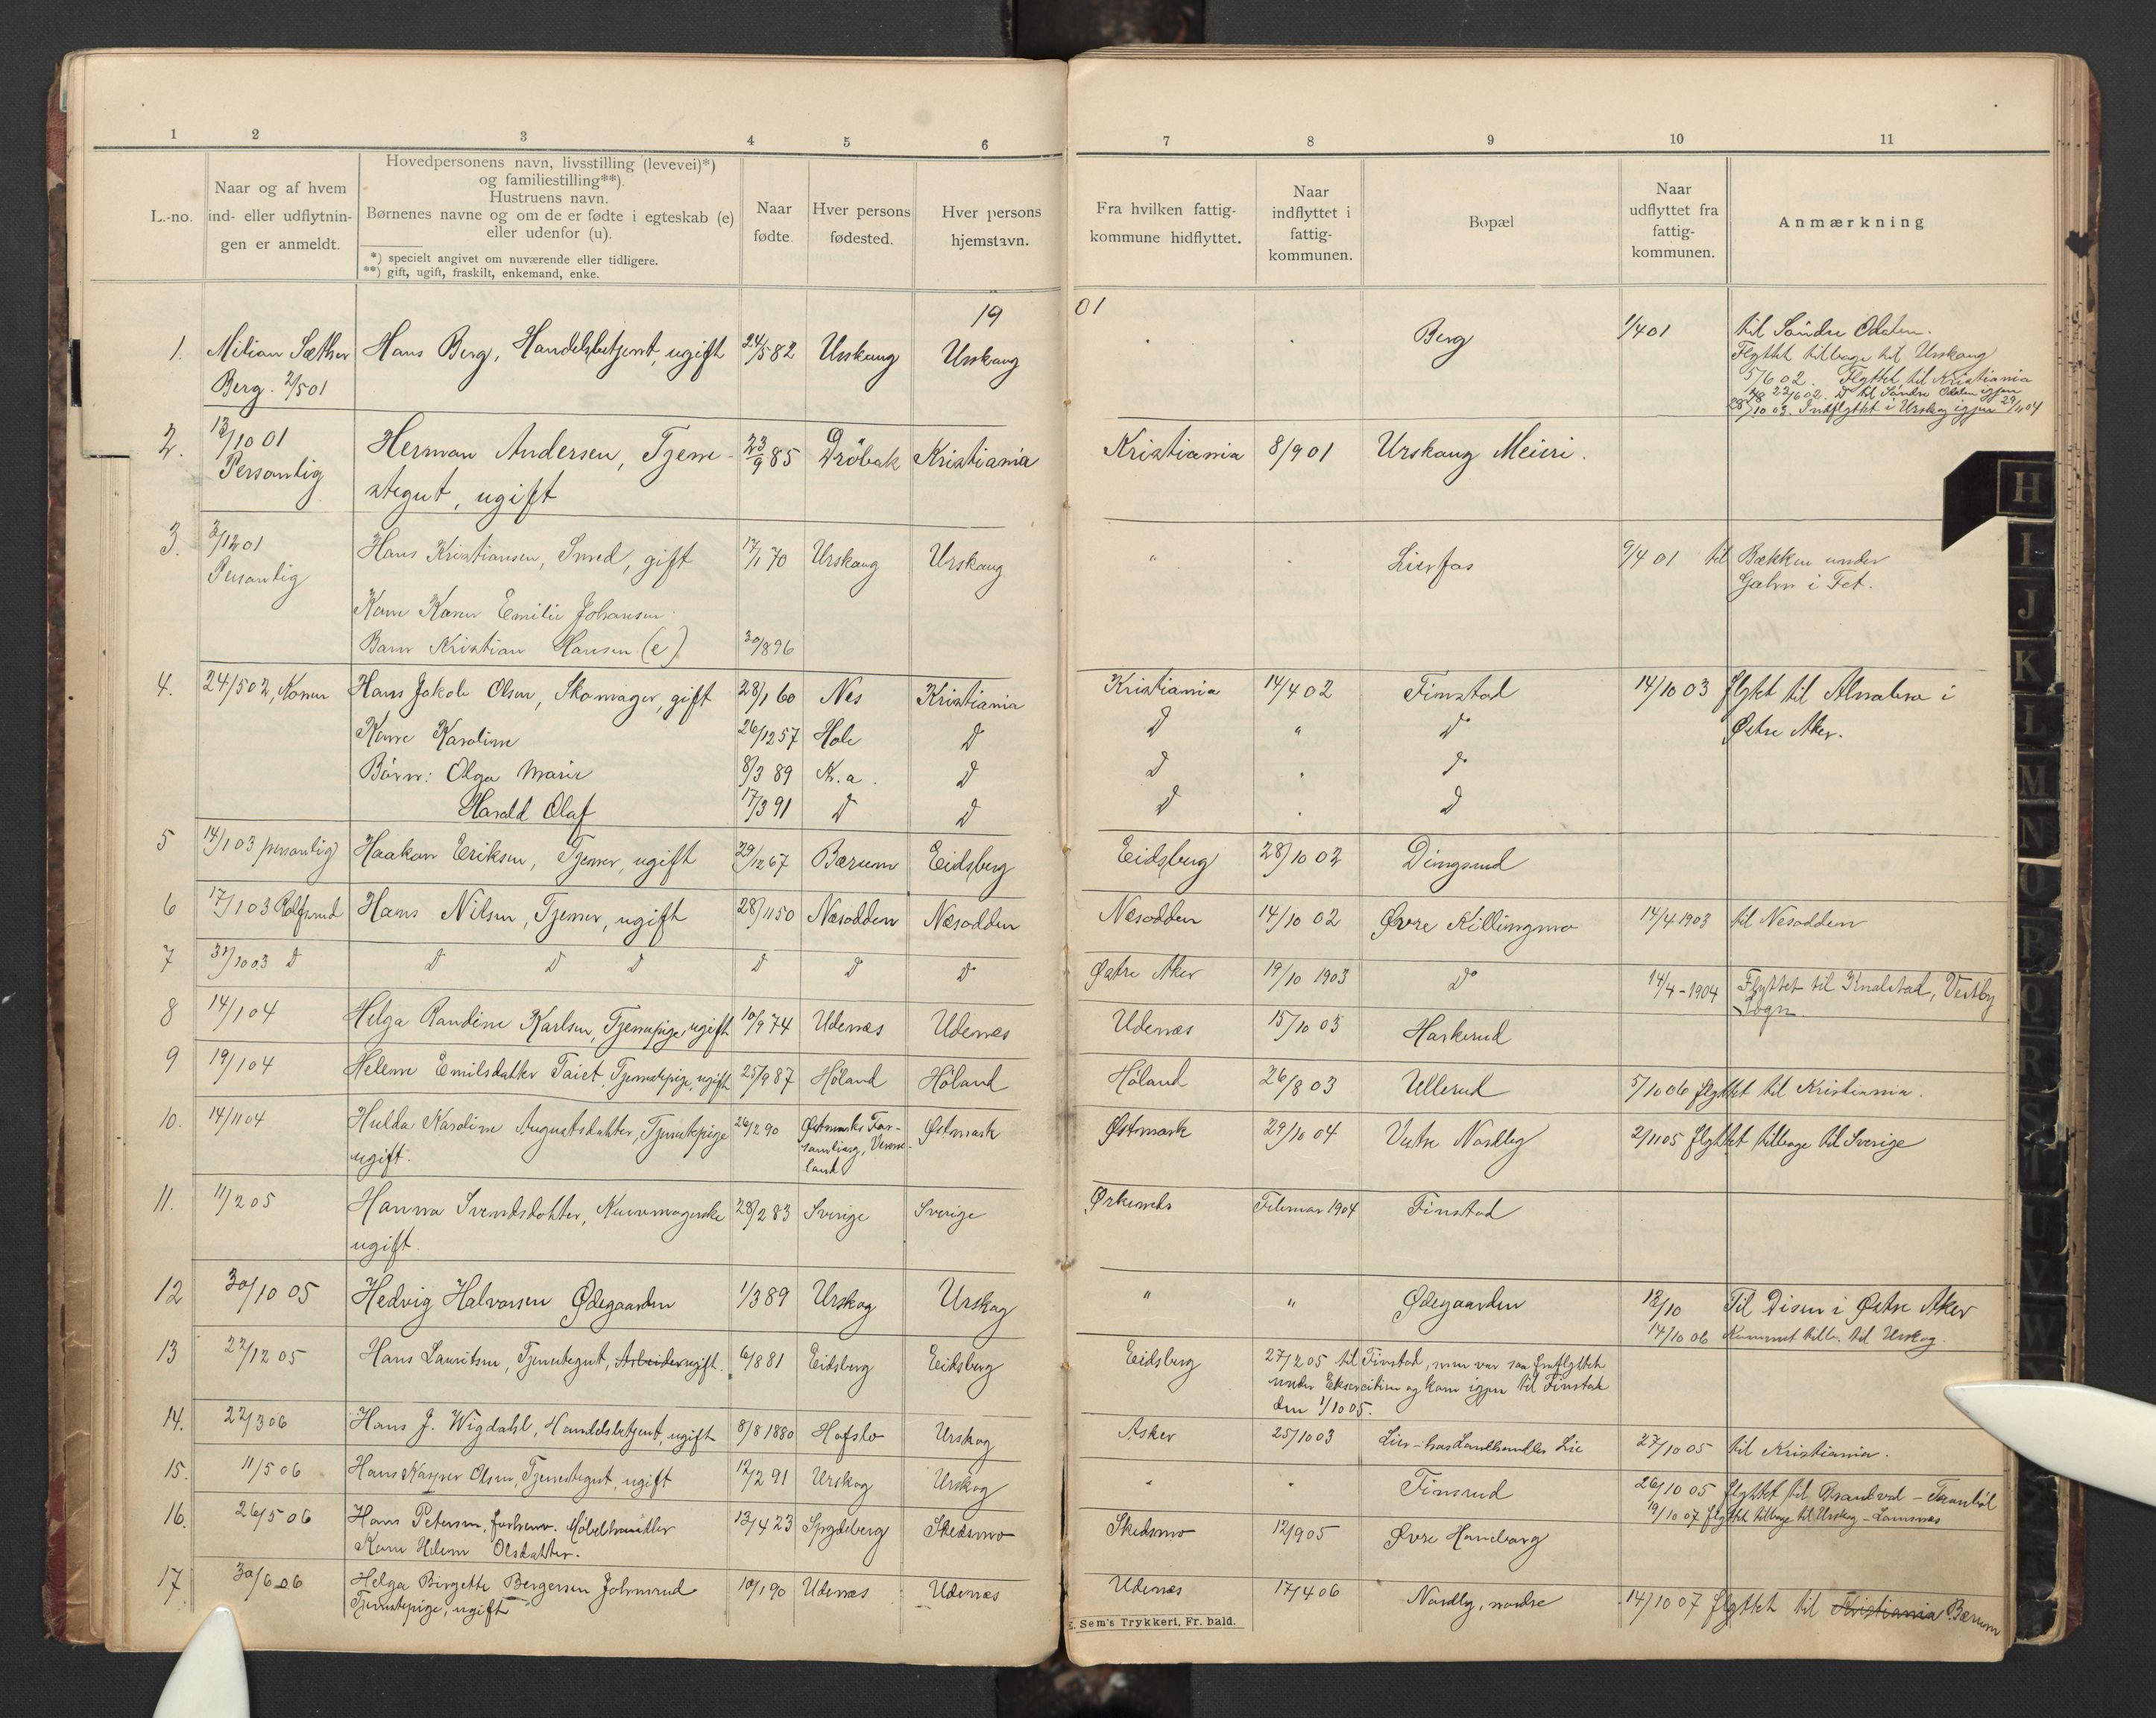 1 2 3 4 5 6 7 8 9 10 11
L.-no.
Naar og af hvem
ind- eller udflytnin-
gen er anmeldt.
Hovedpersonens navn, livsstilling (levevei)*)
og familiestilling**).
Hustruens navn.
Børnenes navne og om de er fødte i egteskab (e)
eller udenfor (u).
*) specielt angivet om nuværende eller tidligere.
**) gift, ugift, fraskilt, enkemand, enke.
Naar
fødte.
Hver persons
fødested.
Hver persons
hjemstavn.
Fra hvilken fattig-
kommune hidflyttet.
Naar
indflyttet i
fattig-
kommunen.
Bopæl
Naar
udflyttet fra
fattig-
kommunen.
Anmærkning
1901
1. Milian Sæther Hans Berg, Handelsbetjent, ugift 24/5 82 Urskaug Urskaug " " Berg 1/4 01 til Söndre Odalen.
Berg. 2/5 01 Flyttet tilbage til Urskaug
5/6 02. Flyttet til Kristiania
22/6 02. D til Söndre Odalen igjen
28/10 03. Indflyttet i Urskog igjen 29/11 04
2. 12/10 01 Herman Andersen, Tjene- 23/9 85 Dröbak Kristiania Kristiania 8/9 01 Urskaug Meieri.
Personlig stegut, ugift
3. 3/12 01 Hans Kristiansen, Smed, gift 17/1 70 Urskaug Urskaug " " Lierfos 9/4 01 til Bækken under
Personlig Galsn i Fet.
Kone Karen Emilie Johansen
Barn Kristian Hansen (e) 30/8 96
4. 24/5 02, Konen Hans Jakob Olsen, Skomager, gift 28/1 60 Nes Kristiania Kristiania 14/4 02 Finstad 14/10 03 flyttet til Alnabru i
Kone Karoline 26/12 57 Hole D D " D Østre Aker.
Börn: Olga Marie 8/3 89 Kr.a. D D " D
Harald Olaf 17/3 91 D D D " D
5 14/1 03 personlig Haakon Eriksen, Tjener, ugift 29/12 67 Bærum Eidsberg Eidsberg 28/10 02 Dingsrud
6 17/1 03 Rolfsrud Hans Nilsen, Tjener, ugift 28/11 50 Næsodden Næsodden Næsodden 14/10 02 Øvre Killingmo 14/4 1903 til Nesodden
7 31/10 03 D D D D D D D Østre Aker 19/10 1903 D 14/4-1904 Flyttet til Knalstad, Vestby
Sogn
8 14/1 04 Helga Randine Karlsen, Tjenepige, ugift 10/9 74 Udenæs Udenæs Udenæs 15/10 03 Haskerud
9 19/1 04 Helene Emilsdatter Taiet, Tjenestepige, ugift 25/9 87 Höland Höland Höland 26/8 03 Ullerud 5/10 06 flyttet til Kristiania.
10. 14/11 04 Hulda Karoline Augustsdatter, Tjenestepige 26/2 90 Østmarks For- Østmark Østmark 29/10 04 Vestre Nordby 2/11 05 flyttet tilbage til Sverige
ugift. samling, Verme-
land
11. 11/2 05 Hanna Svendsdatter, Kurvmagerske 28/2 83 Sverige Sverige Ørkeneds Februar 1904 Finstad
ugift.
12 30/10 05 Hedvig Halvorsen Ødegaarden 1/3 89 Urskog Urskog " " Ødegaarden 12/10 Til Disen i Østre Aker
14/10 06 Kommet tilb. til Urskog.
13 22/12 05 Hans Lauritsen, Tjenestegut, Arbeider ugift. 6/8 81 Eidsberg Eidsberg Eidsberg 27/2 05 til Finstad, men var saa fraflyttet
under Eksercitien og kom igjen til Finstad
den 1/10 05.
14. 22/3 06 Hans J. Wigdahl, Handelsbetjent, ugift 8/8 1880 Hafslo Urskog Asker 25/10 03 Lier - hos Landhandler Lie 27/10 05 til Kristiania.
15. 11/5 06 Hans Kasper Olsen, Tjenestegut, ugift 12/2 91 Urskog Urskog " " Finsrud 26/10 05 flyttet til Brandval -
19/10 07 flyttet tilbage til Urskog - Lomsnæs
16. 26/5 06 Hans Petersen, forhenv. Möbelhandler 13/4 23 Spydeberg Skedsmo Skedsmo 12/9 05 Øvre Haneborg
Kone Helene Olsdatter.
17 30/6 06 Helga Birgette Bergersen Johnsrud 10/1 90 Udenæs Udenæs Udenæs 17/4 06 Nordby, nordre 14/10 07 flyttet til Kristiania Bærum
Tjenestepige, ugift
E. Sem's Trykkeri, Fr.hald.
H
I
J
K
L
M
N
O
P
Q
R
S
T
U
V